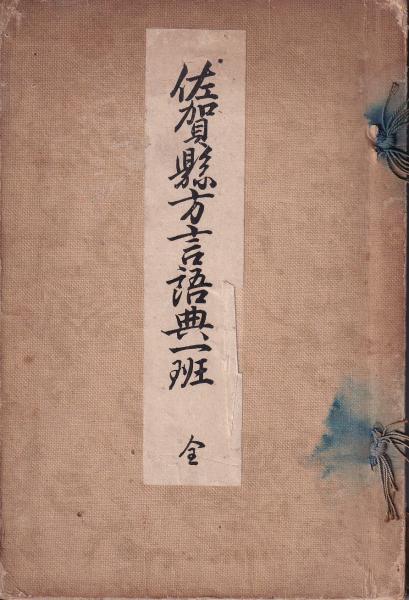 佐賀縣方言語典一班
全